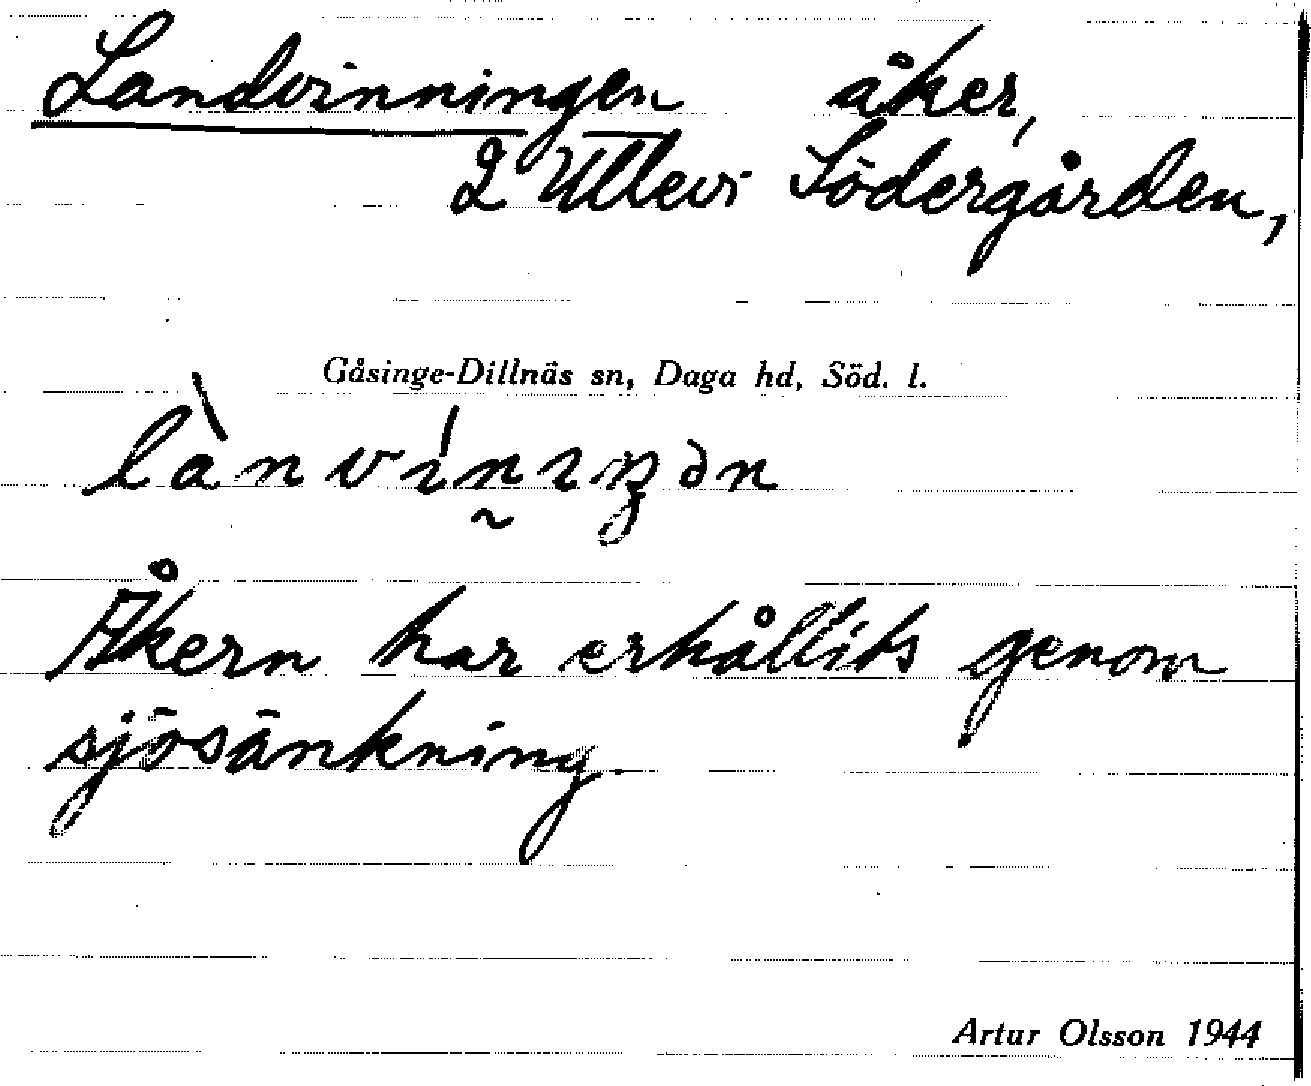 Landvinningen åker,
2 Ullevi Södergården,
Gåsinge-Dillnäs sn, Daga hd, Söd. l.
lànvíṋıŋən
Åkern har erhållits genom
sjösänkning.
Artur Olsson 1944